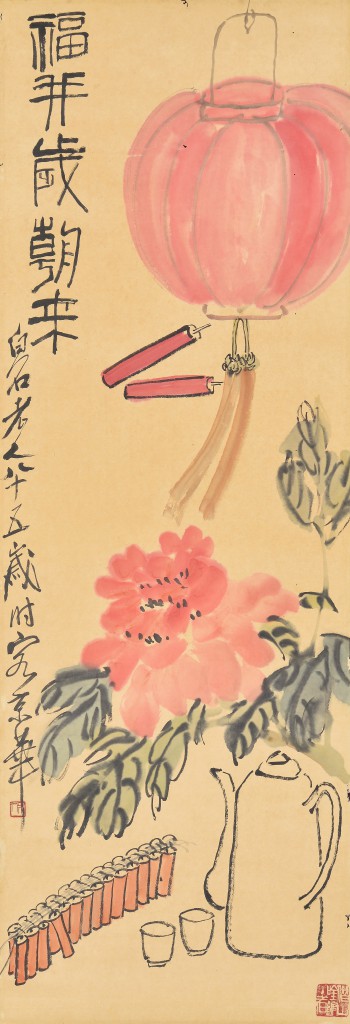 福并歲朝来
白石老人八十五歲时客京華